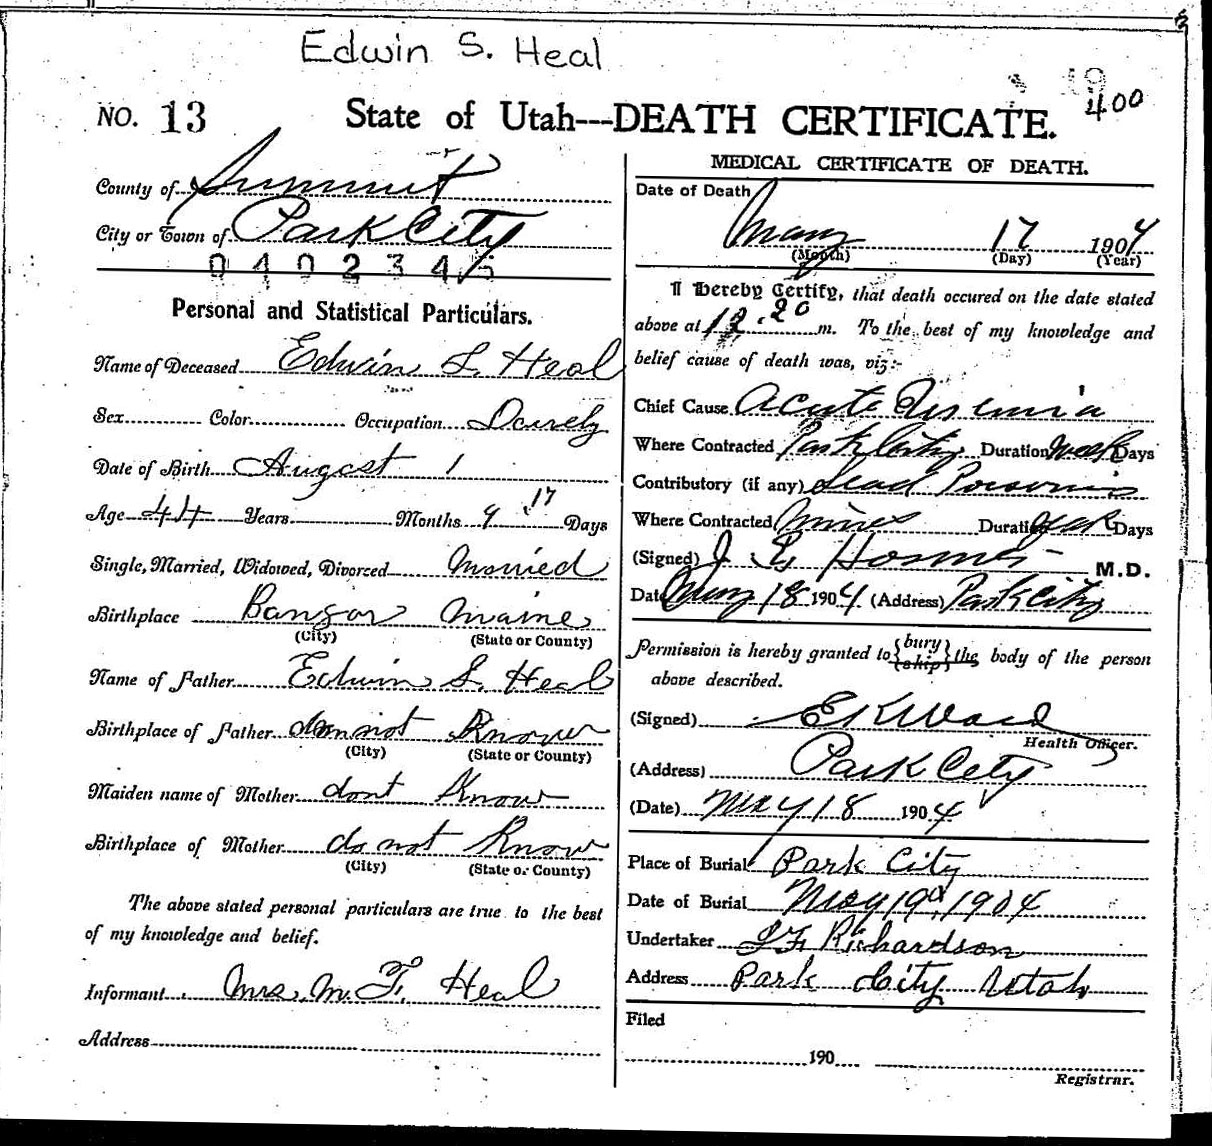 Edwin S. Heal
400
NO. 13 State of Utah---DEATH CERTIFICATE.
County of Summit
City or Town of Park City
0402345
Personal and Statistical Particulars.
Name of Deceased Edwin S. Heal
Sex Color Occupation
Date of Birth August 1
Age 44 Years Months 9 17 Days
Single, Married, Widowed, Divorced Married
Birthplace Bangor Maine
(City) (State or County)
Name of Father Edwin S. Heal
Birthplace of Father do not Know
(City) (State or County)
Maiden name of Mother dont Know
Birthplace of Mother do not Know
(City) (State or County)
The above stated personal particulars are true to the best
of my knowledge and belief.
Informant Mrs. M. F. Heal
Address
MEDICAL CERTIFICATE OF DEATH.
Date of Death
May 17 1904
(Month) (Day) (Year)
I Hereby Certify, that death occured on the date stated
above at 12.20 m. To the best of my knowledge and
belief cause of death was, viz:-
Chief Cause Acute Uremia
Where Contracted Park City Duration week Days
Contributory (if any) Lead Poisoning
Where Contracted Mines Duration year Days
(Signed) J. E. M.D.
Date May 18 1904 (Address) Park City
Permission is hereby granted to {bury ship} the body of the person
above described.
(Signed) E K Ward
Health Officer.
(Address) Park City
(Date) May 18 1904
Place of Burial Park City
Date of Burial May 19, 1904
Undertaker Richardson
Address Park City Utah
Filed
190
Registrar.